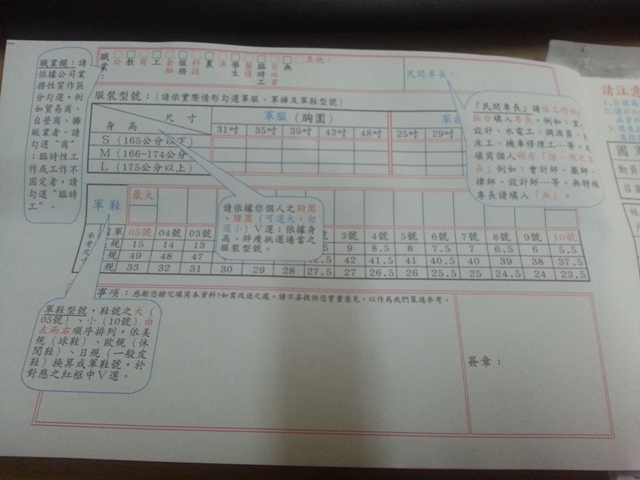 職業欄：請
依據公司業
務性質作區
分勾選，例
如貿易商、
自營商、攤
販業者，請
勾選“商”
；臨時性工
作或工作不
固定者，請
勾選“臨時
工”。
職業：
公 教 商 工 金融 服務 科技 農 學生 醫護 臨時工 自由業 無 其他：
民間專長：
服裝型號：(請依實際情形勾選軍服、軍褲及軍鞋型號)
尺寸
身高
軍服(胸圍)
31吋 35吋 39吋 43吋 48吋 25吋 29吋
S (165公分以下)
M (166-174公分)
L (175公分以上)
請依據你個人之胸圍
、腰圍(可選大，勿
選小)V選；依據身
高、胖瘦挑選適當之
服裝型號。
「民間專長」請依工作性質
區分填入專長，例如：
設計、水電工、調酒員、
床工、機車修理工…等，
填寫個人領有「證、照之專
長」例如：會計師、藥師、
律師、設計師…等，無特殊
專長請填入「無」。
軍鞋
最大
05號 04號 03號 4號 5號 6號 7號 8號 9號 10號
規 15 14 13 9 8.5 8 7 6 5.5
規 49 48 47 42 41.5 41 40.5 40 38 37.5
規 33 32 31 30 29 28 27.5 27 26.5 26 25.5 25 24.5 24 23.5
事項：感謝您撥冗填寫本資料！如需改進之處，請不吝提供您寶貴意見，以作為我們策進參考。
軍鞋型號，鞋號之大(
05號)、小(10號)由
左而右順序排列，依美
規(球鞋)、歐規(休
閒鞋)、日規(一般皮
鞋)換算成軍鞋號，於
對應之紅框中V選。
簽章：
請注意